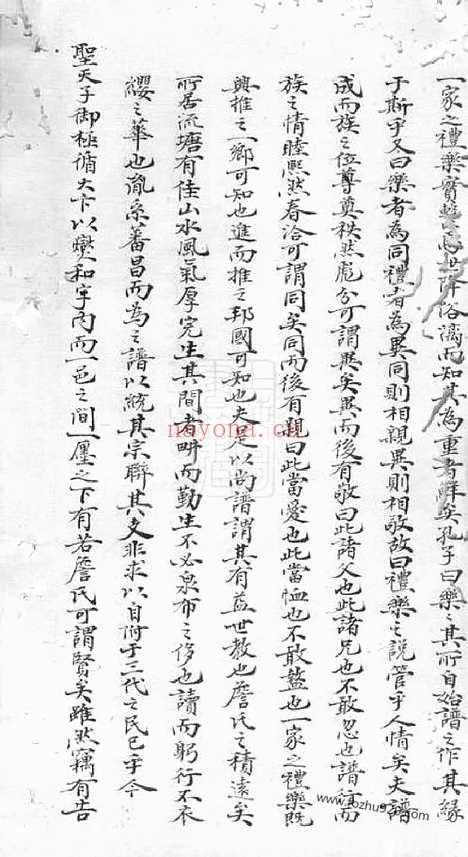 一家之禮樂實□□□世降俗漓而知其為重者鮮矣孔子曰樂樂其所自始譜之作其緣
于斯乎又曰樂者為同禮者為異同則相親異則相敬故曰禮樂之說管乎人情矣夫譜
成而族之位尊尊秩然庞分可謂異矣異而後有敬曰此諸父也此諸兄也不敢忽也譜行而
族之情睦熙然春洽可謂同矣同而後有親曰此當愛也此當恤也不敢盭也一家之禮樂既
興推之一鄉可知也進而推之邦國可知也夫是以尚譜謂其有益世教也詹氏之積遠矣
所居流塘有佳山水風氣厚完生其間者畊而勤生不必泉布之侈也讀而躬行不衣
纓之華也胤系蕃昌而為之譜以統其宗聯其支非求以自附于三代之民已乎今
聖天子御極脩大下以爕和宇內而一邑之間一廛之下有若詹氏可謂賢矣雖然竊有告
nayona.cn
www.lozhu9.com